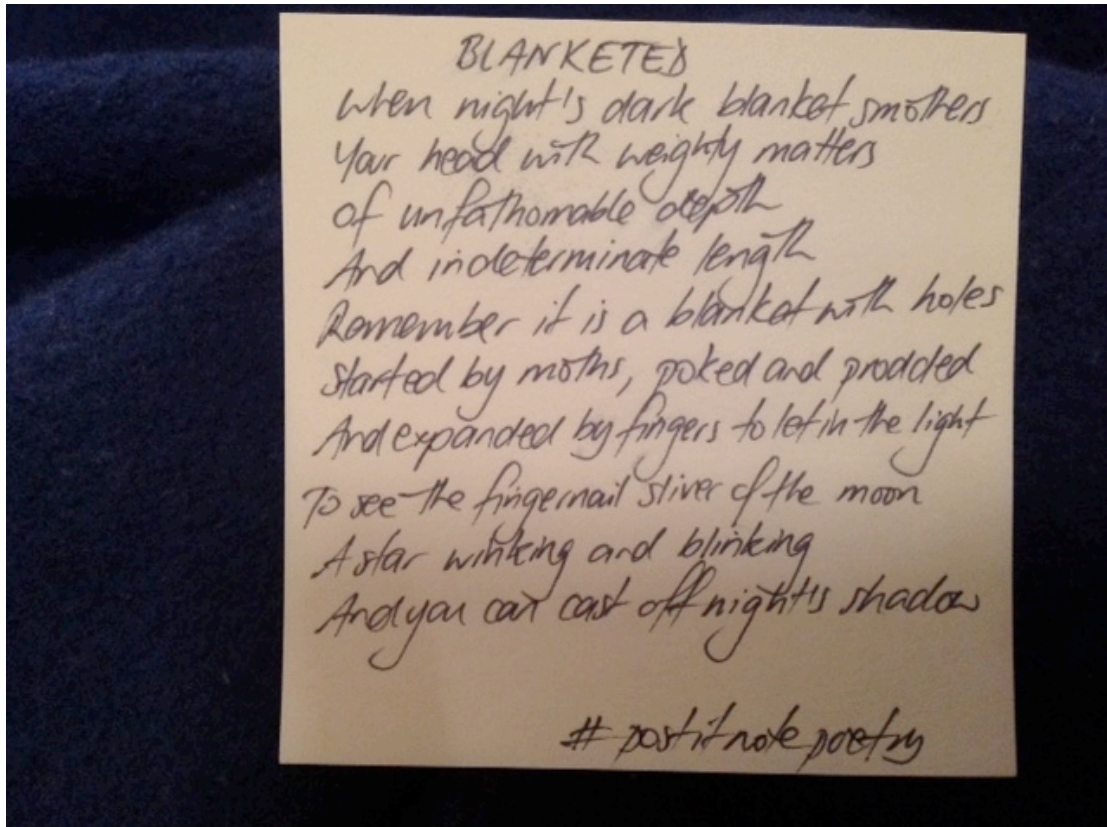 BLANKETED
When night's dark blanket smothers
Your head with weighty matters
Of unfathomable depth
And indeterminate length
Remember it is a blanket with holes
Started by moths, poked and prodded
And expanded by fingers to let in the light
To see the fingernail sliver of the moon
A star winking and blinking
And you can cast off night's shadow
# postitnotepoetry